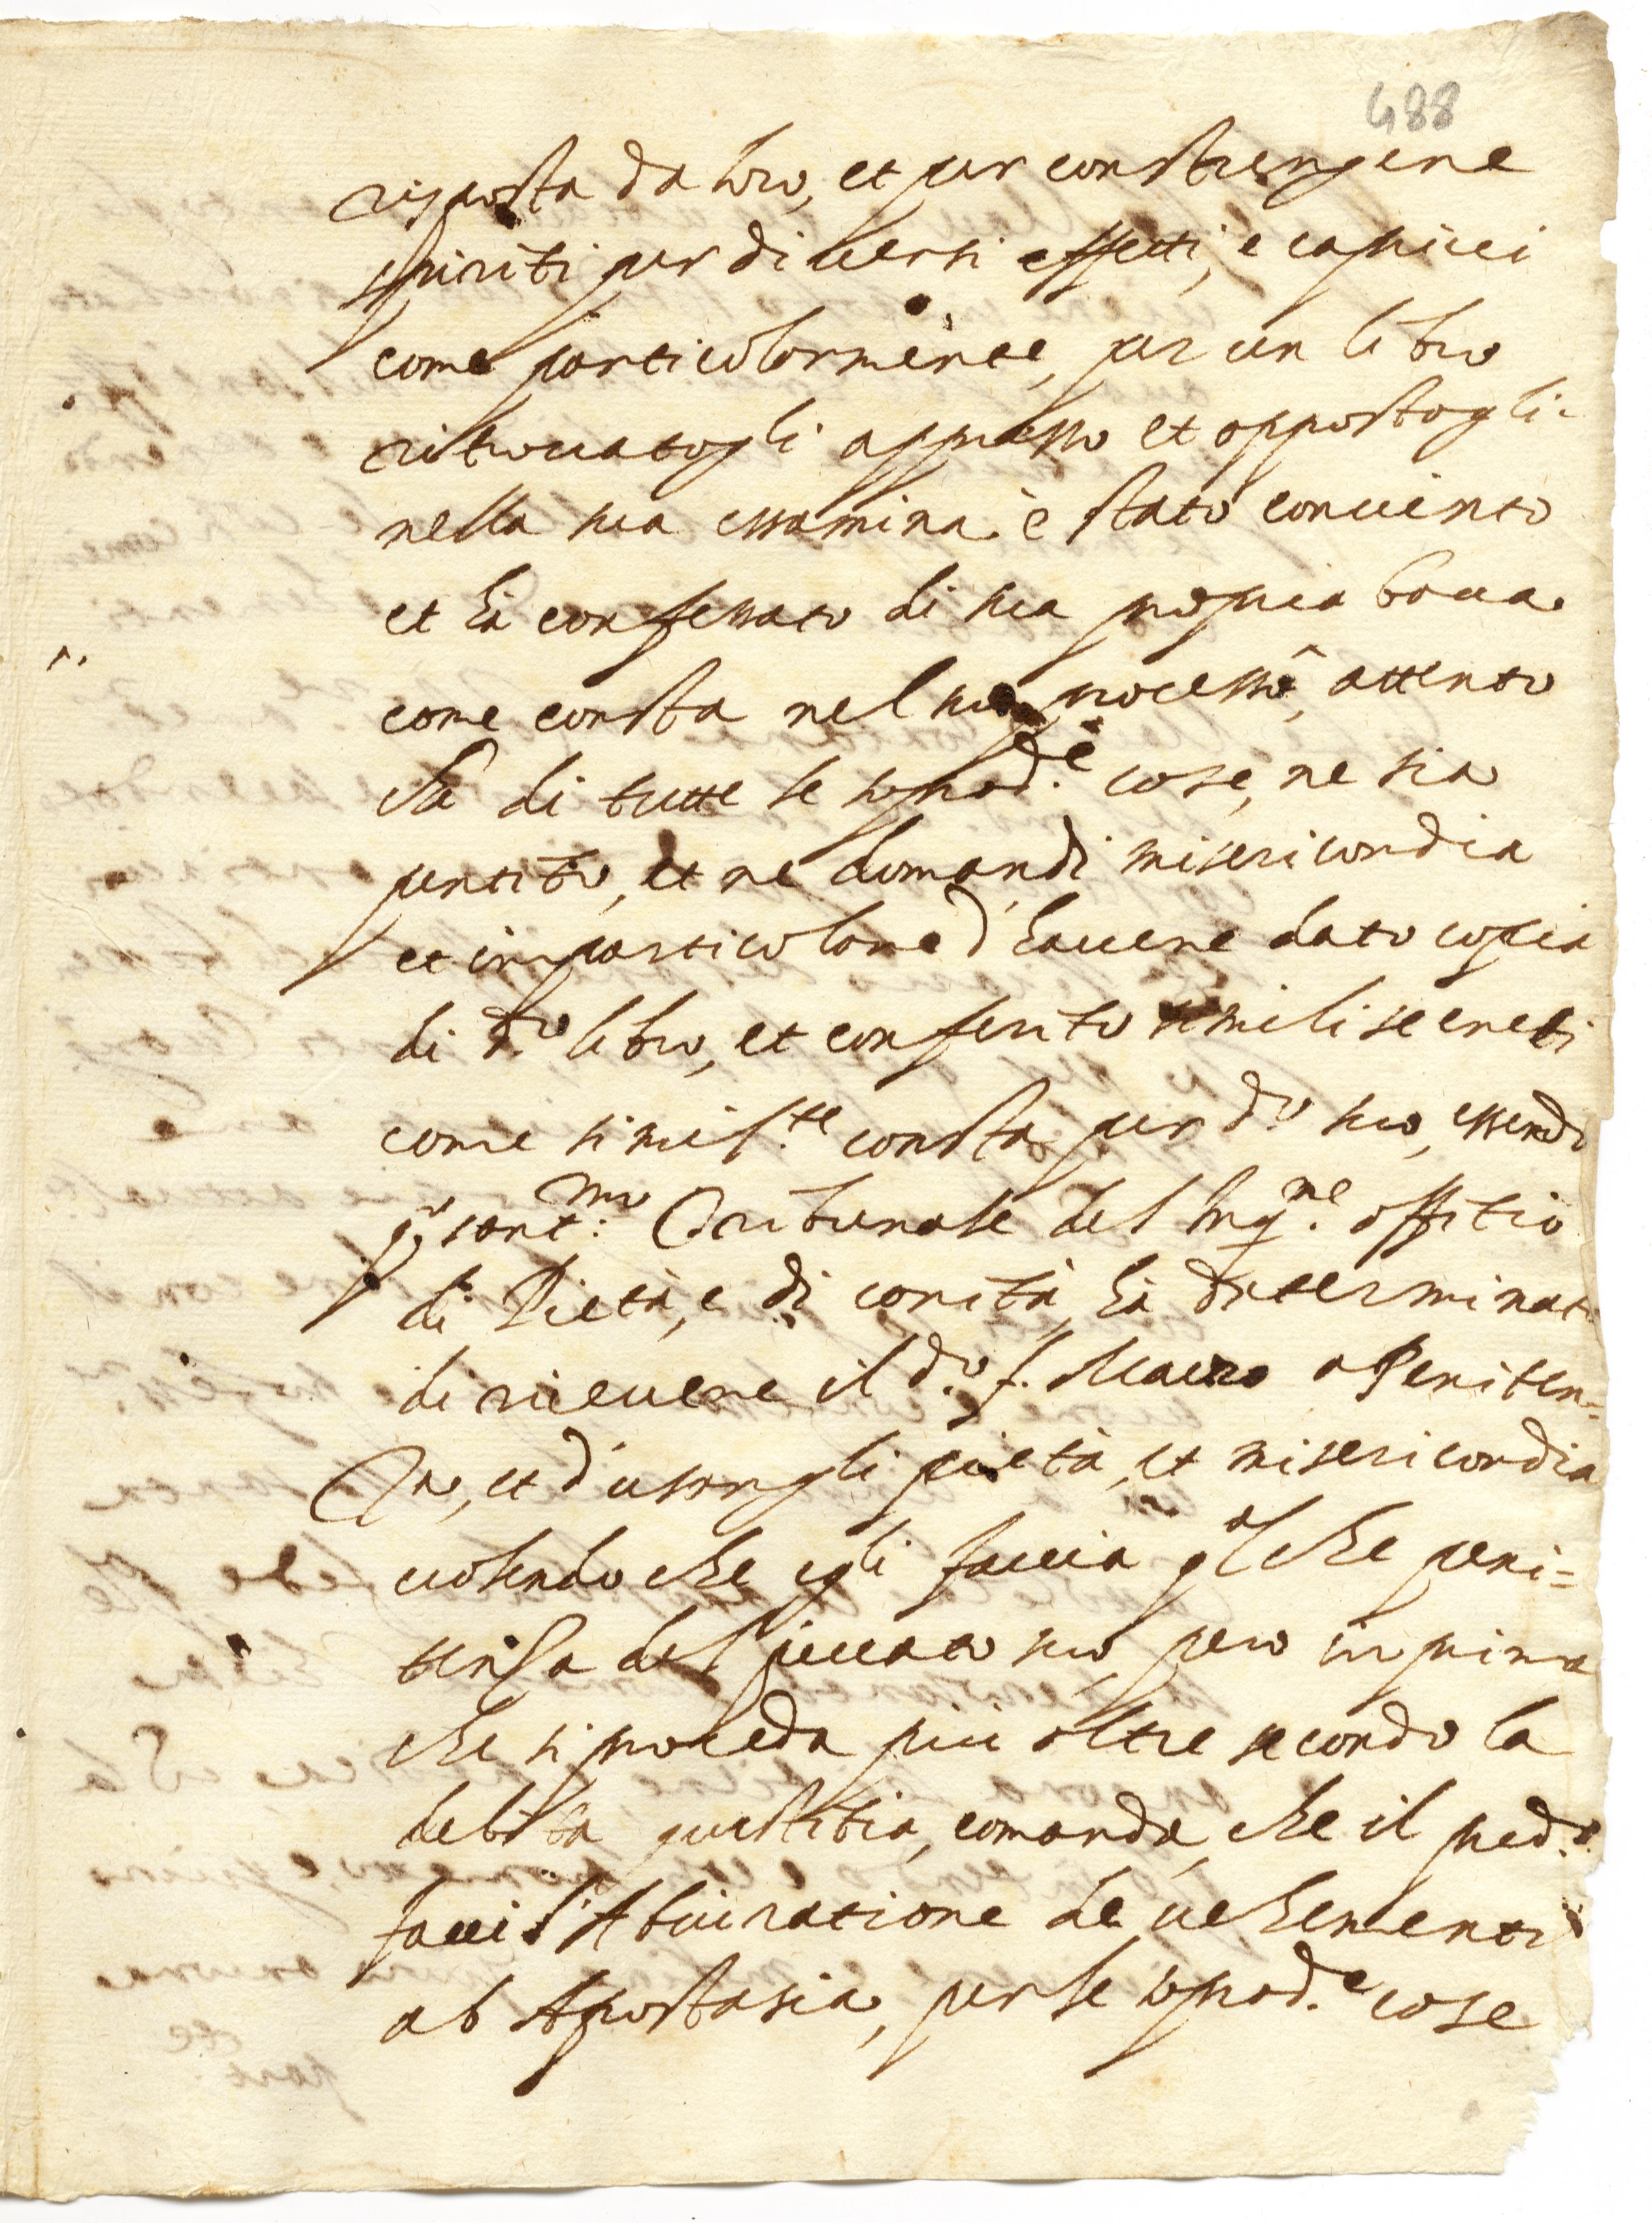 488
risposta da loro, et per constrengere
spiriti per diuersi effetti, e capricci
come particolarmente, per un libro
ritrouatogli appresso et oppostogli
nella sua essamina è stato conuinto
et hà confessato di sua propria bocca
come consta nel suo processo, attento
che di tutte le soprad.e cose, ne sia
pentito, et ne domandi misericordia
et in particolare d'hauere dato copia
di d.to libro, et conferito simili secreti
come simil.te consta per d.o suo, essendo
q.o sant.mo Tribunale del Inq.ne offitio
di Pietà, e di carità, hà determinato
di riceuere il d.o f. Mauro a Peniten=
Za, et d'usargli pietà, et misericordia
uolendo che egli faccia q.al che peni=
tenza del peccato suo, pero in prima
che si proceda più oltre secondo la
debita giustitia, comanda, che il pred.o
facci l'Abiuratione de uehementi
ab Apostasia, per le soprad.e cose